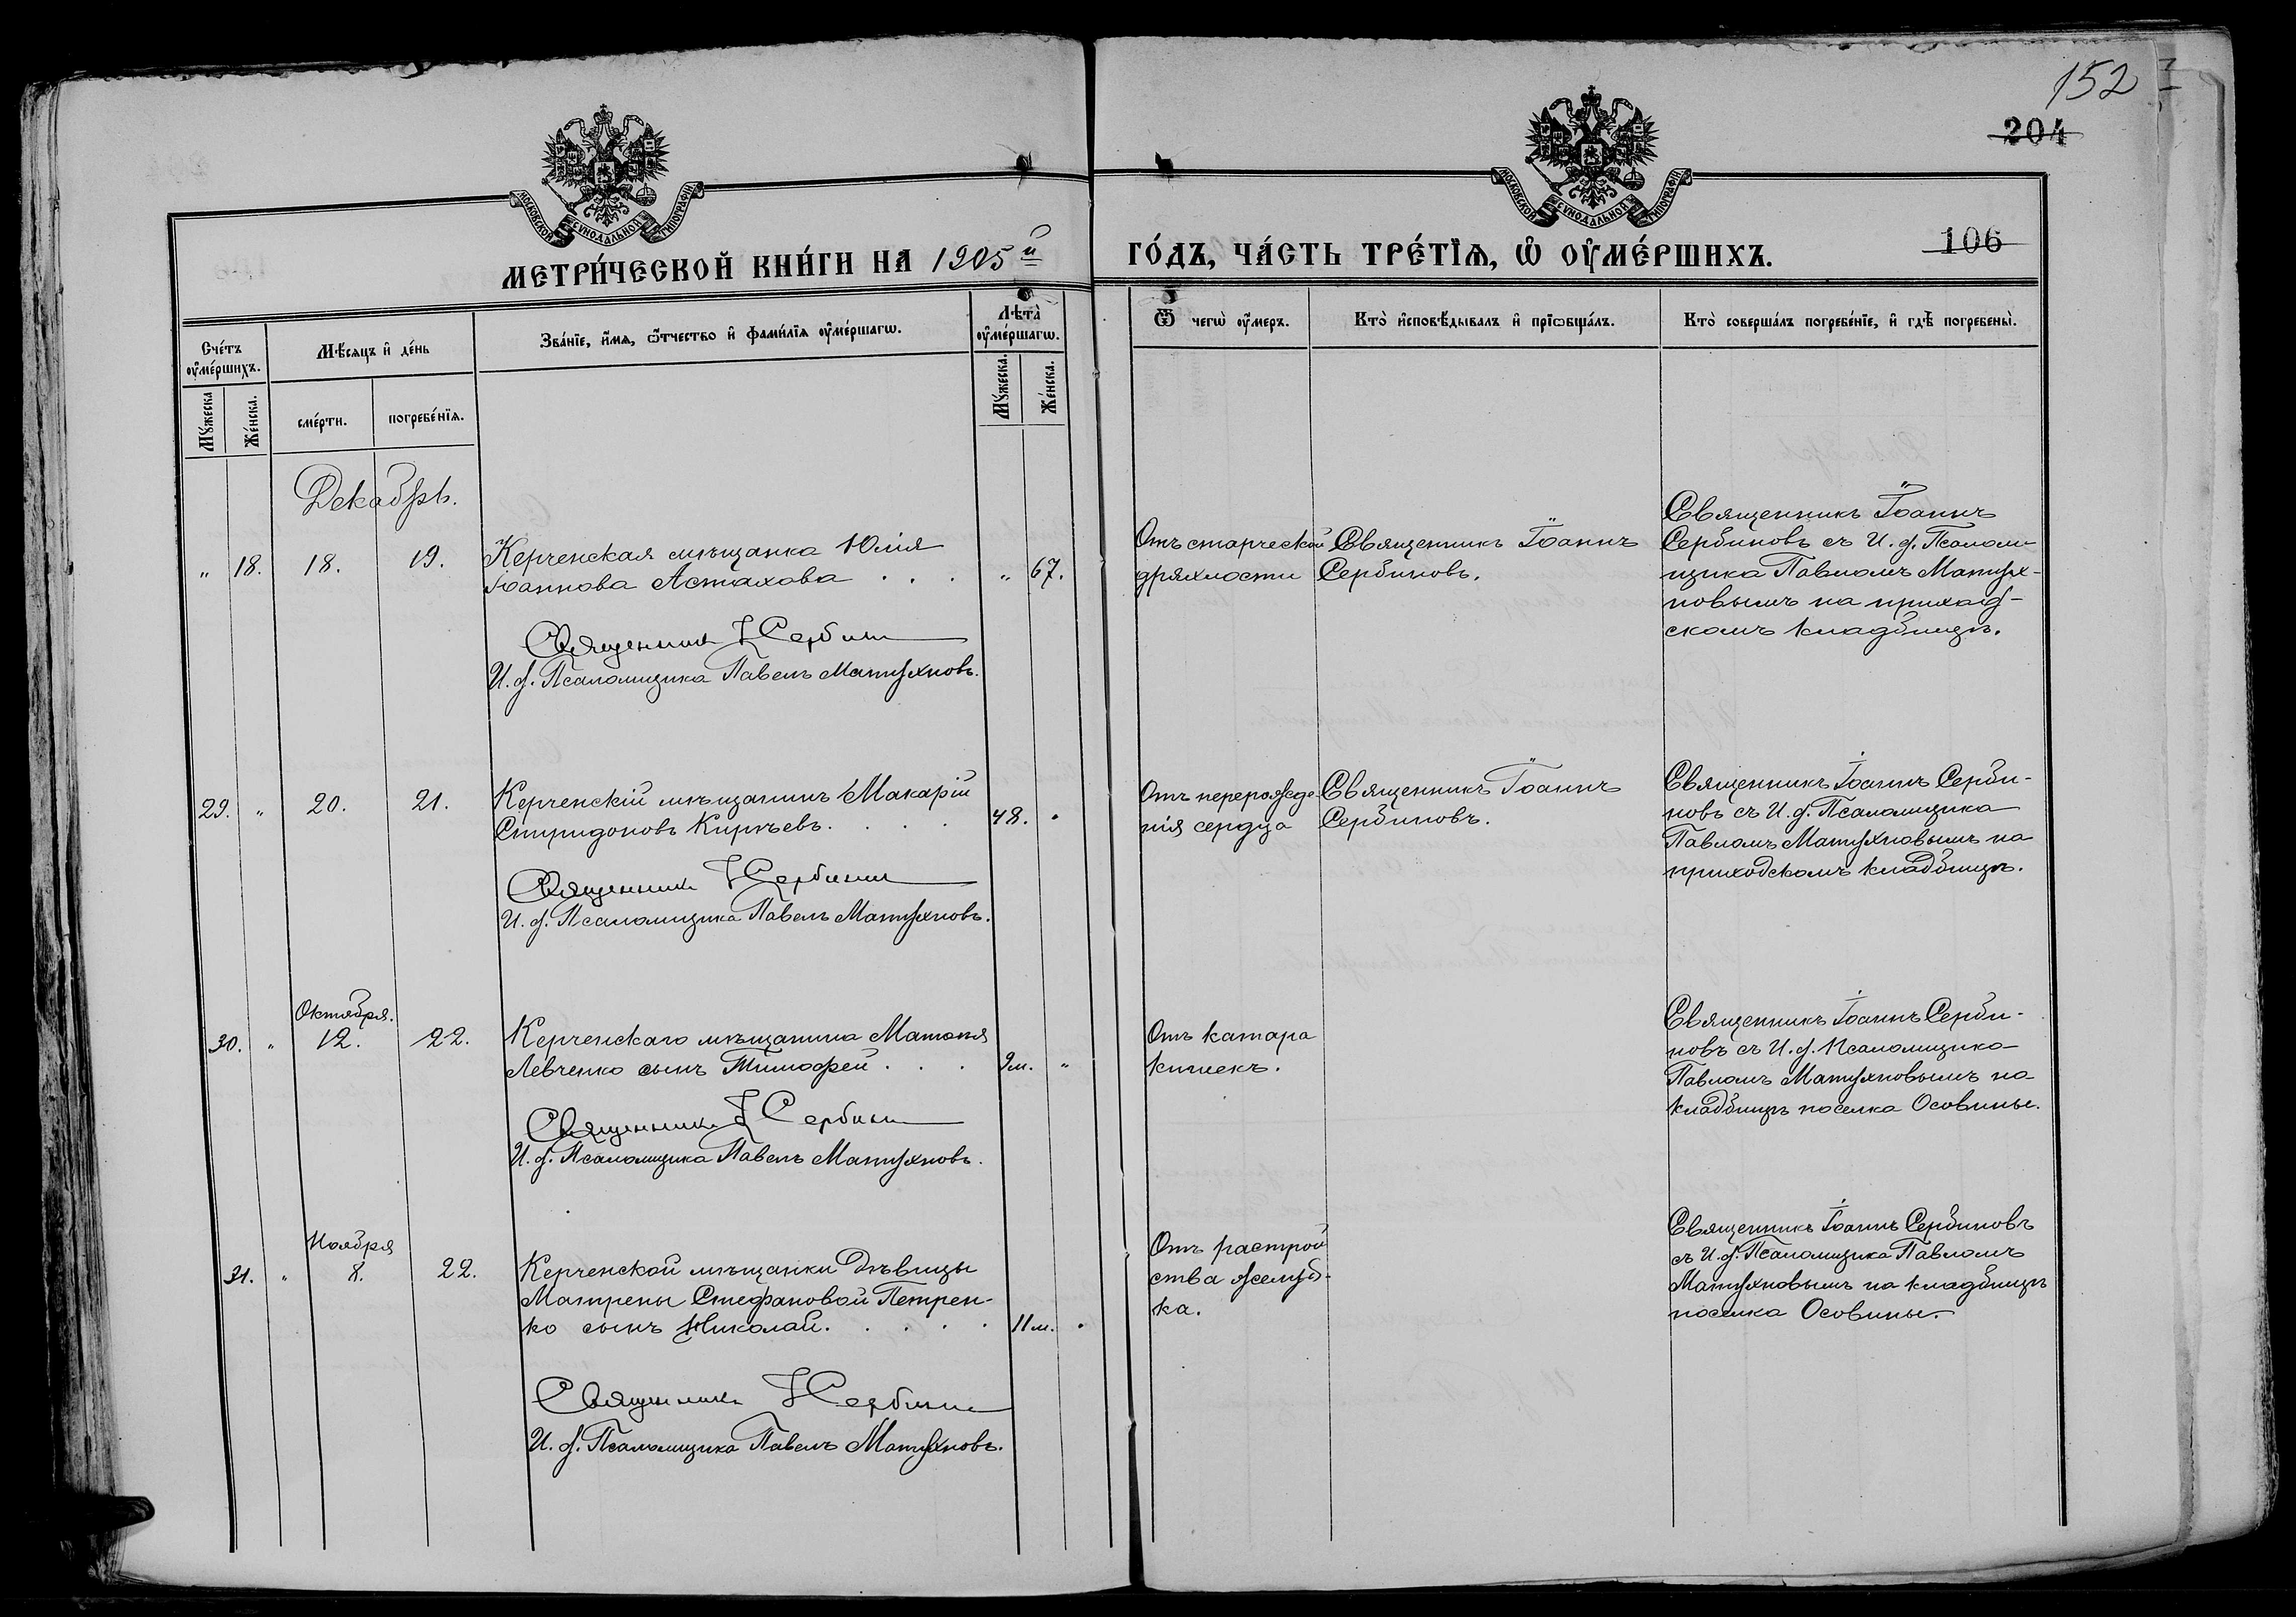 152
204
106
МОСКОВСКОЙ СѴНОДАЛЬНОЙ ТИПОГРАФІИ
МОСКОВСКОЙ СѴНОДАЛЬНОЙ ТИПОГРАФІИ
МЕТРИ́ЧЕСКОЙ КНИ́ГИ НА 1905й
ГО́ДЪ, ЧА́СТЬ ТРЕ́ТЇѦ, Ѡ҆ ОУ҆МЕ́РШИХЪ.
Сче́тъ оу҆ме́ршихъ.
Мѣ́сѧцъ и҆ де́нь
Зва́нїе, и҆́мѧ, ѻ҆́тчество и҆ фами́лїѧ оу҆ме́ршагѡ.
Лѣта̀ оу҆ме́ршагѡ.
Ѿ чегѡ̀ оу҆́меръ.
Кто̀ и҆сповѣ́дывалъ и҆ прїѡбща́лъ.
Кто̀ соверша́лъ погребе́нїе, и҆ гдѣ̀ погребены̀.
Мꙋ́жеска
Же́нска.
сме́рти.
погребе́нїѧ.
Мꙋ́жеска.
Же́нска.
Декабрь.
„ 18. 18. 19.
Керченская мѣщанка Юлія
Іоаннова Астахова . . . „ 67.
Священник І Сербинов
И. д. Псаломщика Павелъ Матухновъ.
Отъ старческой
дряхлости
Священникъ Іоаннъ
Сербиновъ.
Священникъ Іоаннъ
Сербиновъ съ И. д. Псалом-
щика Павломъ Матух-
новымъ на приход-
скомъ кладбищѣ.
29. „ 20. 21.
Керченскій мѣщанинъ Макарій
Спиридоновъ Киричевъ. . . . 48. „
Священник І Сербинов
И. д. Псаломщика Павелъ Матухновъ.
Отъ перерожде-
нія сердца
Священникъ Іоаннъ
Сербиновъ.
Священникъ Іоаннъ Серби-
новъ съ И. д. Псаломщика
Павломъ Матухновымъ на
приходскомъ кладбищѣ.
Октября.
30. „ 12. 22.
Керченскаго мѣщанина
Левченко сынъ Тимофей . . . 9м. „
Священник І Сербинов
И. д. Псаломщика Павелъ Матухновъ.
Отъ катара
кишекъ.
Священникъ Іоаннъ Серби-
новъ съ И. д. Псаломщика
Павломъ Матухновымъ на
кладбищѣ поселка Осовины.
Ноября
31. „ 8. 22.
Керченской мѣщанки дѣвицы
Матрены Стефановой Петрен-
ко сынъ Николай. . . . . 11м. „
Священник І Сербинов
И. д. Псаломщика Павелъ Матухновъ.
Отъ растрой
ства желуд-
ка.
Священникъ Іоаннъ Сербиновъ
съ И. д. Псаломщика Павломъ
Матухновымъ на кладбищѣ
поселка Осовины.